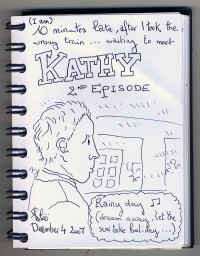 (I am)
10 minutes late, after I took the
wrong train ... waiting to meet
KATHY
2ND EPISODE
Rainy day ♫
dream away, let the
sun take holiday...
December 4 2007